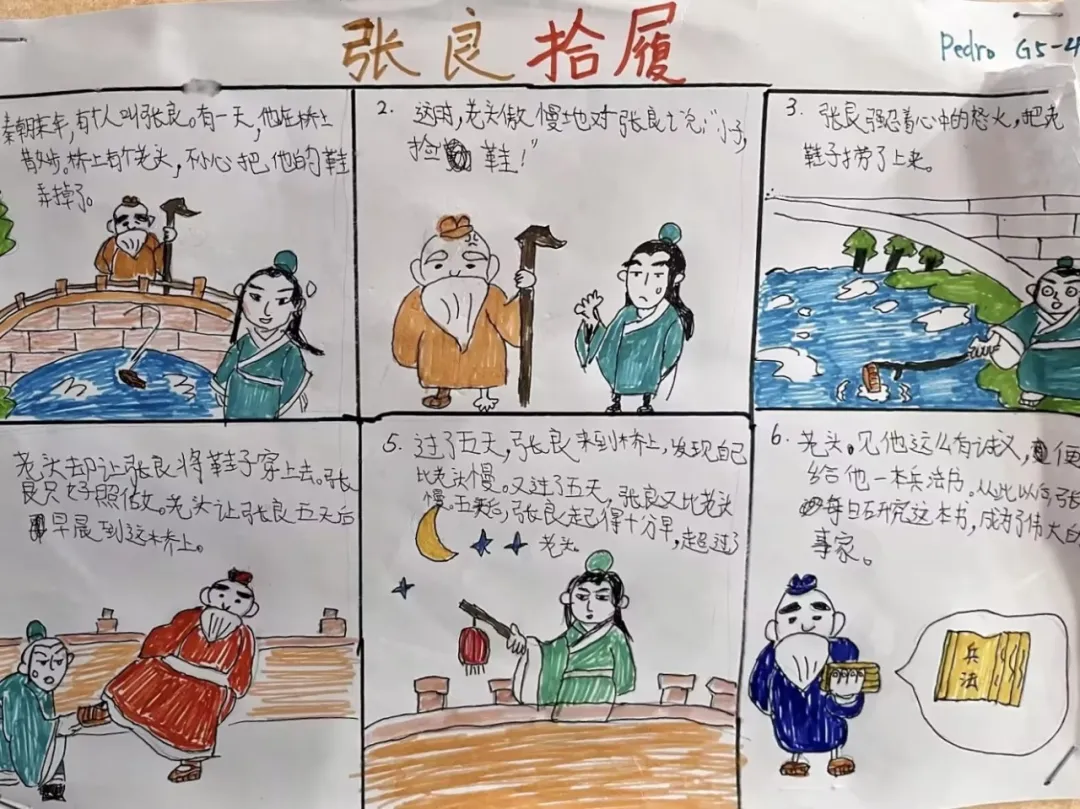 张良拾履
Pedro G5-4
秦朝末年,有个人叫张良。有一天,他在桥上
散步。桥上有个老头,不小心把他的鞋
弄掉了。
2. 这时,老头傲慢地对张良说:“小子,
捡鞋!”
3. 张良强忍着心中的怒火,把老
鞋子捞了上来。
老头却让张良将鞋子穿上去。张
良只好照做。老头让张良五天后
早晨到这桥上。
5. 过了五天,张良来到桥上,发现自己
比老头慢。又过了五天,张良又比老头
慢。五天后,张良起得十分早,超过了
老头。
6. 老头见他这么有诚义,便
给他一本兵法书。从此以后,张
每日研究这本书,成为了伟大的
事家。
兵
法